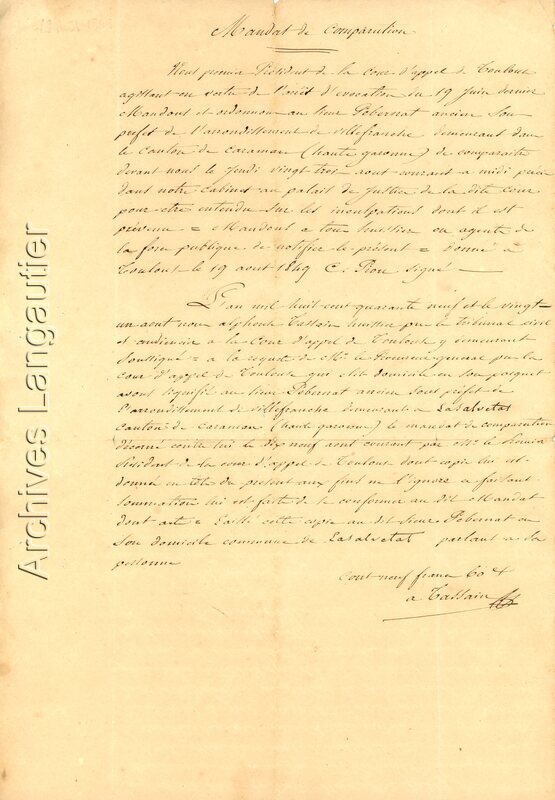 Mandat de Comparution
Nous premier Président de la cour d'appel de Toulouse
agissant en vertu de l'arrêt d'évocation du 19 Juin dernier
Mandons et ordonnons au sieur Pebernat ancien Sous
prefet de l'arrondissement de villefranche demeurant dans
le canton de caraman (haute garonne) de comparaitre
devant nous le jeudi vingt trois aout courant a midi précis
dans notre cabinet au palais de justice de la dite cour
pour etre entendu sur les inculpations dont il est
prévenu = Mandons a tous huissiers ou agents de
la force publique de notifier le présent = donné a
Toulouse le 19 aout 1849 C. Piou signé —
L'an mil huit cent quarante neuf et le vingt-
un aout nous alphonse Tassain huissier près le tribunal civil
et audiencier a la Cour d'appel de Toulouse y demeurant
Soussigné = a la requete de Mr. le Procureur general près la
cour d'appel de Toulouse qui elit domicile en son parquet
avons signifié au sieur Pebernat ancien Sous prefet de
l'arrondissement de villefranche demeurant a Lasalvetat
canton de caraman (haute garonne) le mandat de comparution
décerné contre lui le dix neuf aout courant par Mr. le premier
President de la cour d'appel de Toulouse dont copie lui est
donnée en tête du présent aux fins ne l'ignore et faisant
sommation lui est faite de se conformer au dit Mandat
dont acte = Laissé cette copie au dit sieur Pebernat en
son domicile commune de Lasalvetat parlant a sa
personne
cout neuf francs 60 c
a Tassain
Archives Langautier